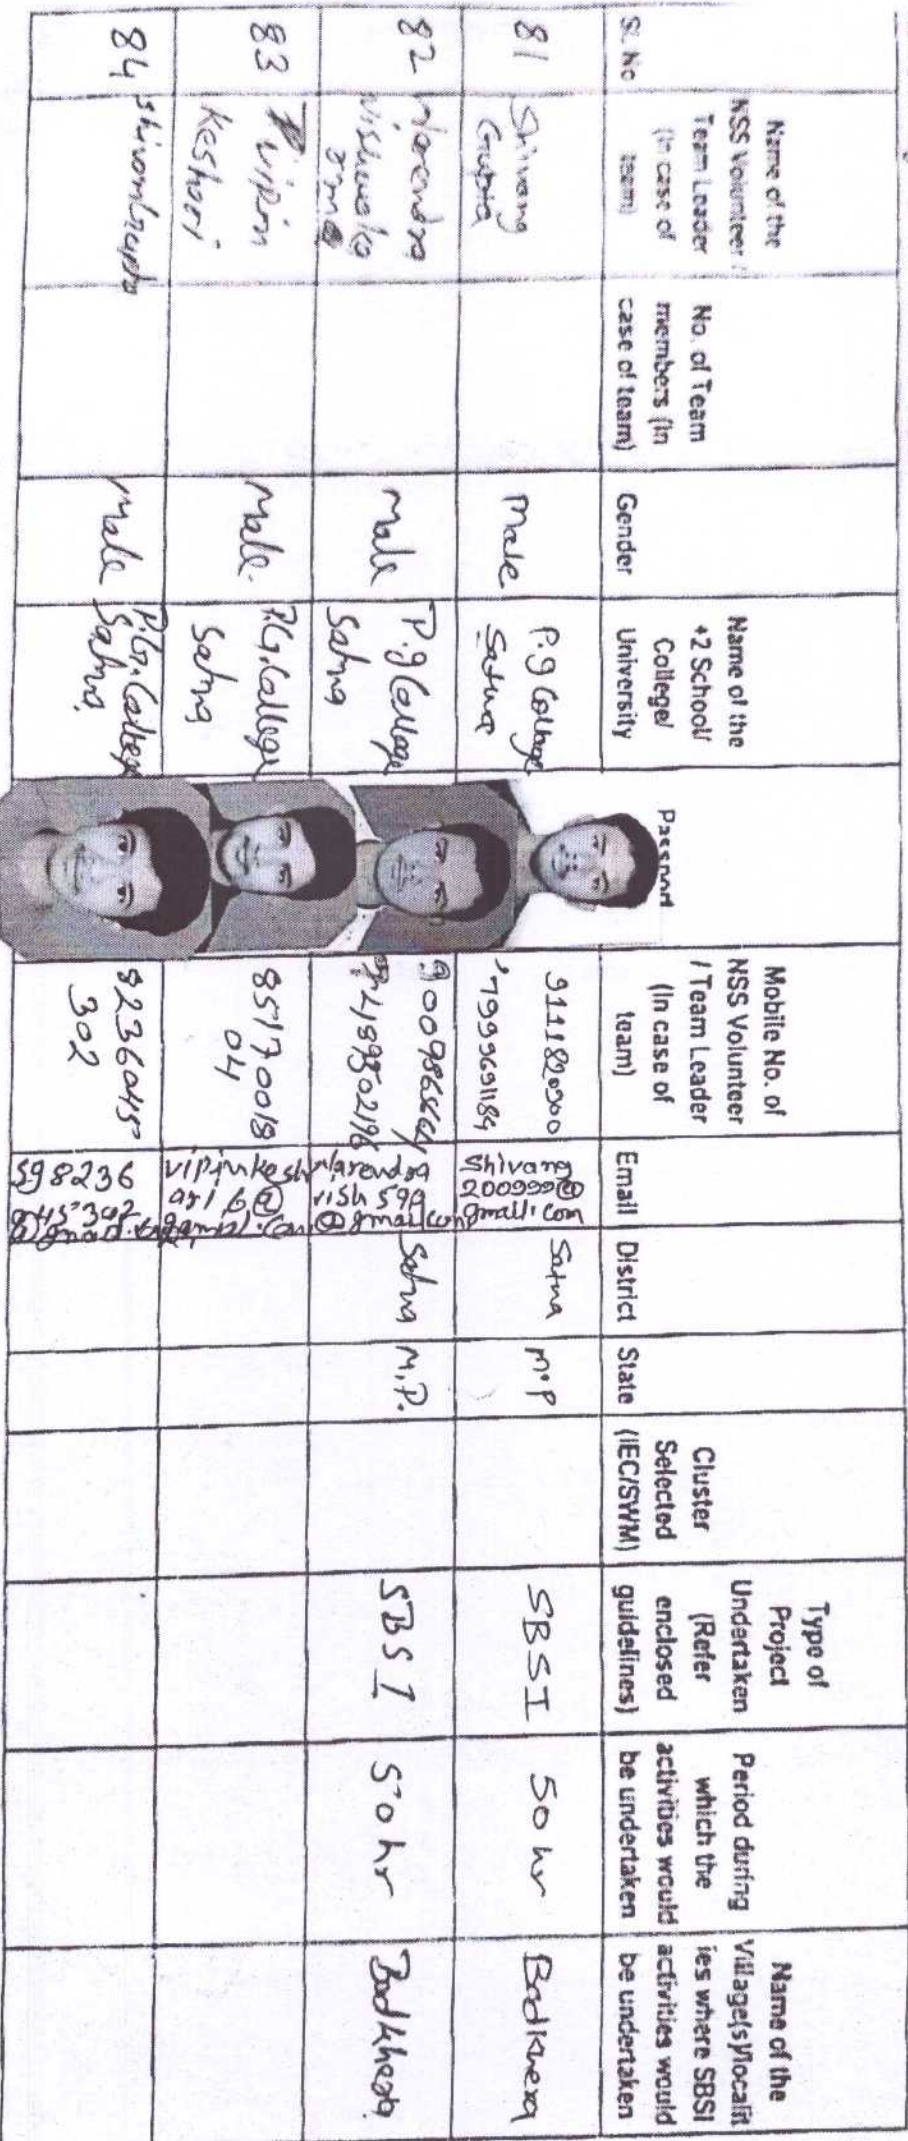 Sl. No
Name of the
NSS Volunteer /
Team Leader
(In case of
team)
No. of Team
members (In
case of team)
Gender
Name of the
+2 School/
College/
University
Passport
Mobile No. of
NSS Volunteer
/ Team Leader
(In case of
team)
Email
District
State
Cluster
Selected
(IEC/SWM)
Type of
Project
Undertaken
(Refer
enclosed
guidelines)
Period during
which the
activities would
be undertaken
Name of the
Village(s)/localit
ies where SBSI
activities would
be undertaken
81
Shivang
Gupta
Male
P.g College
Satna
7999691184
Shivang
200999@
gmail.com
Satna
M.P
SBSI
50 hr
Badkhera
82
Narendra
Vishwaka
rma
Male
P.g College
Satna
Narendra
vish599
@gmail.com
Satna
M.P.
SBSI
50 hr
Badkhera
83
Vipin
Keshari
Male.
P.G. College
Satna
85170018
04
vipinkesh
ari6@
gmail.com
84
Shivam Gupta
Male
P.G. College
Satna
8236045
302
sg8236
045302
@gmail.com